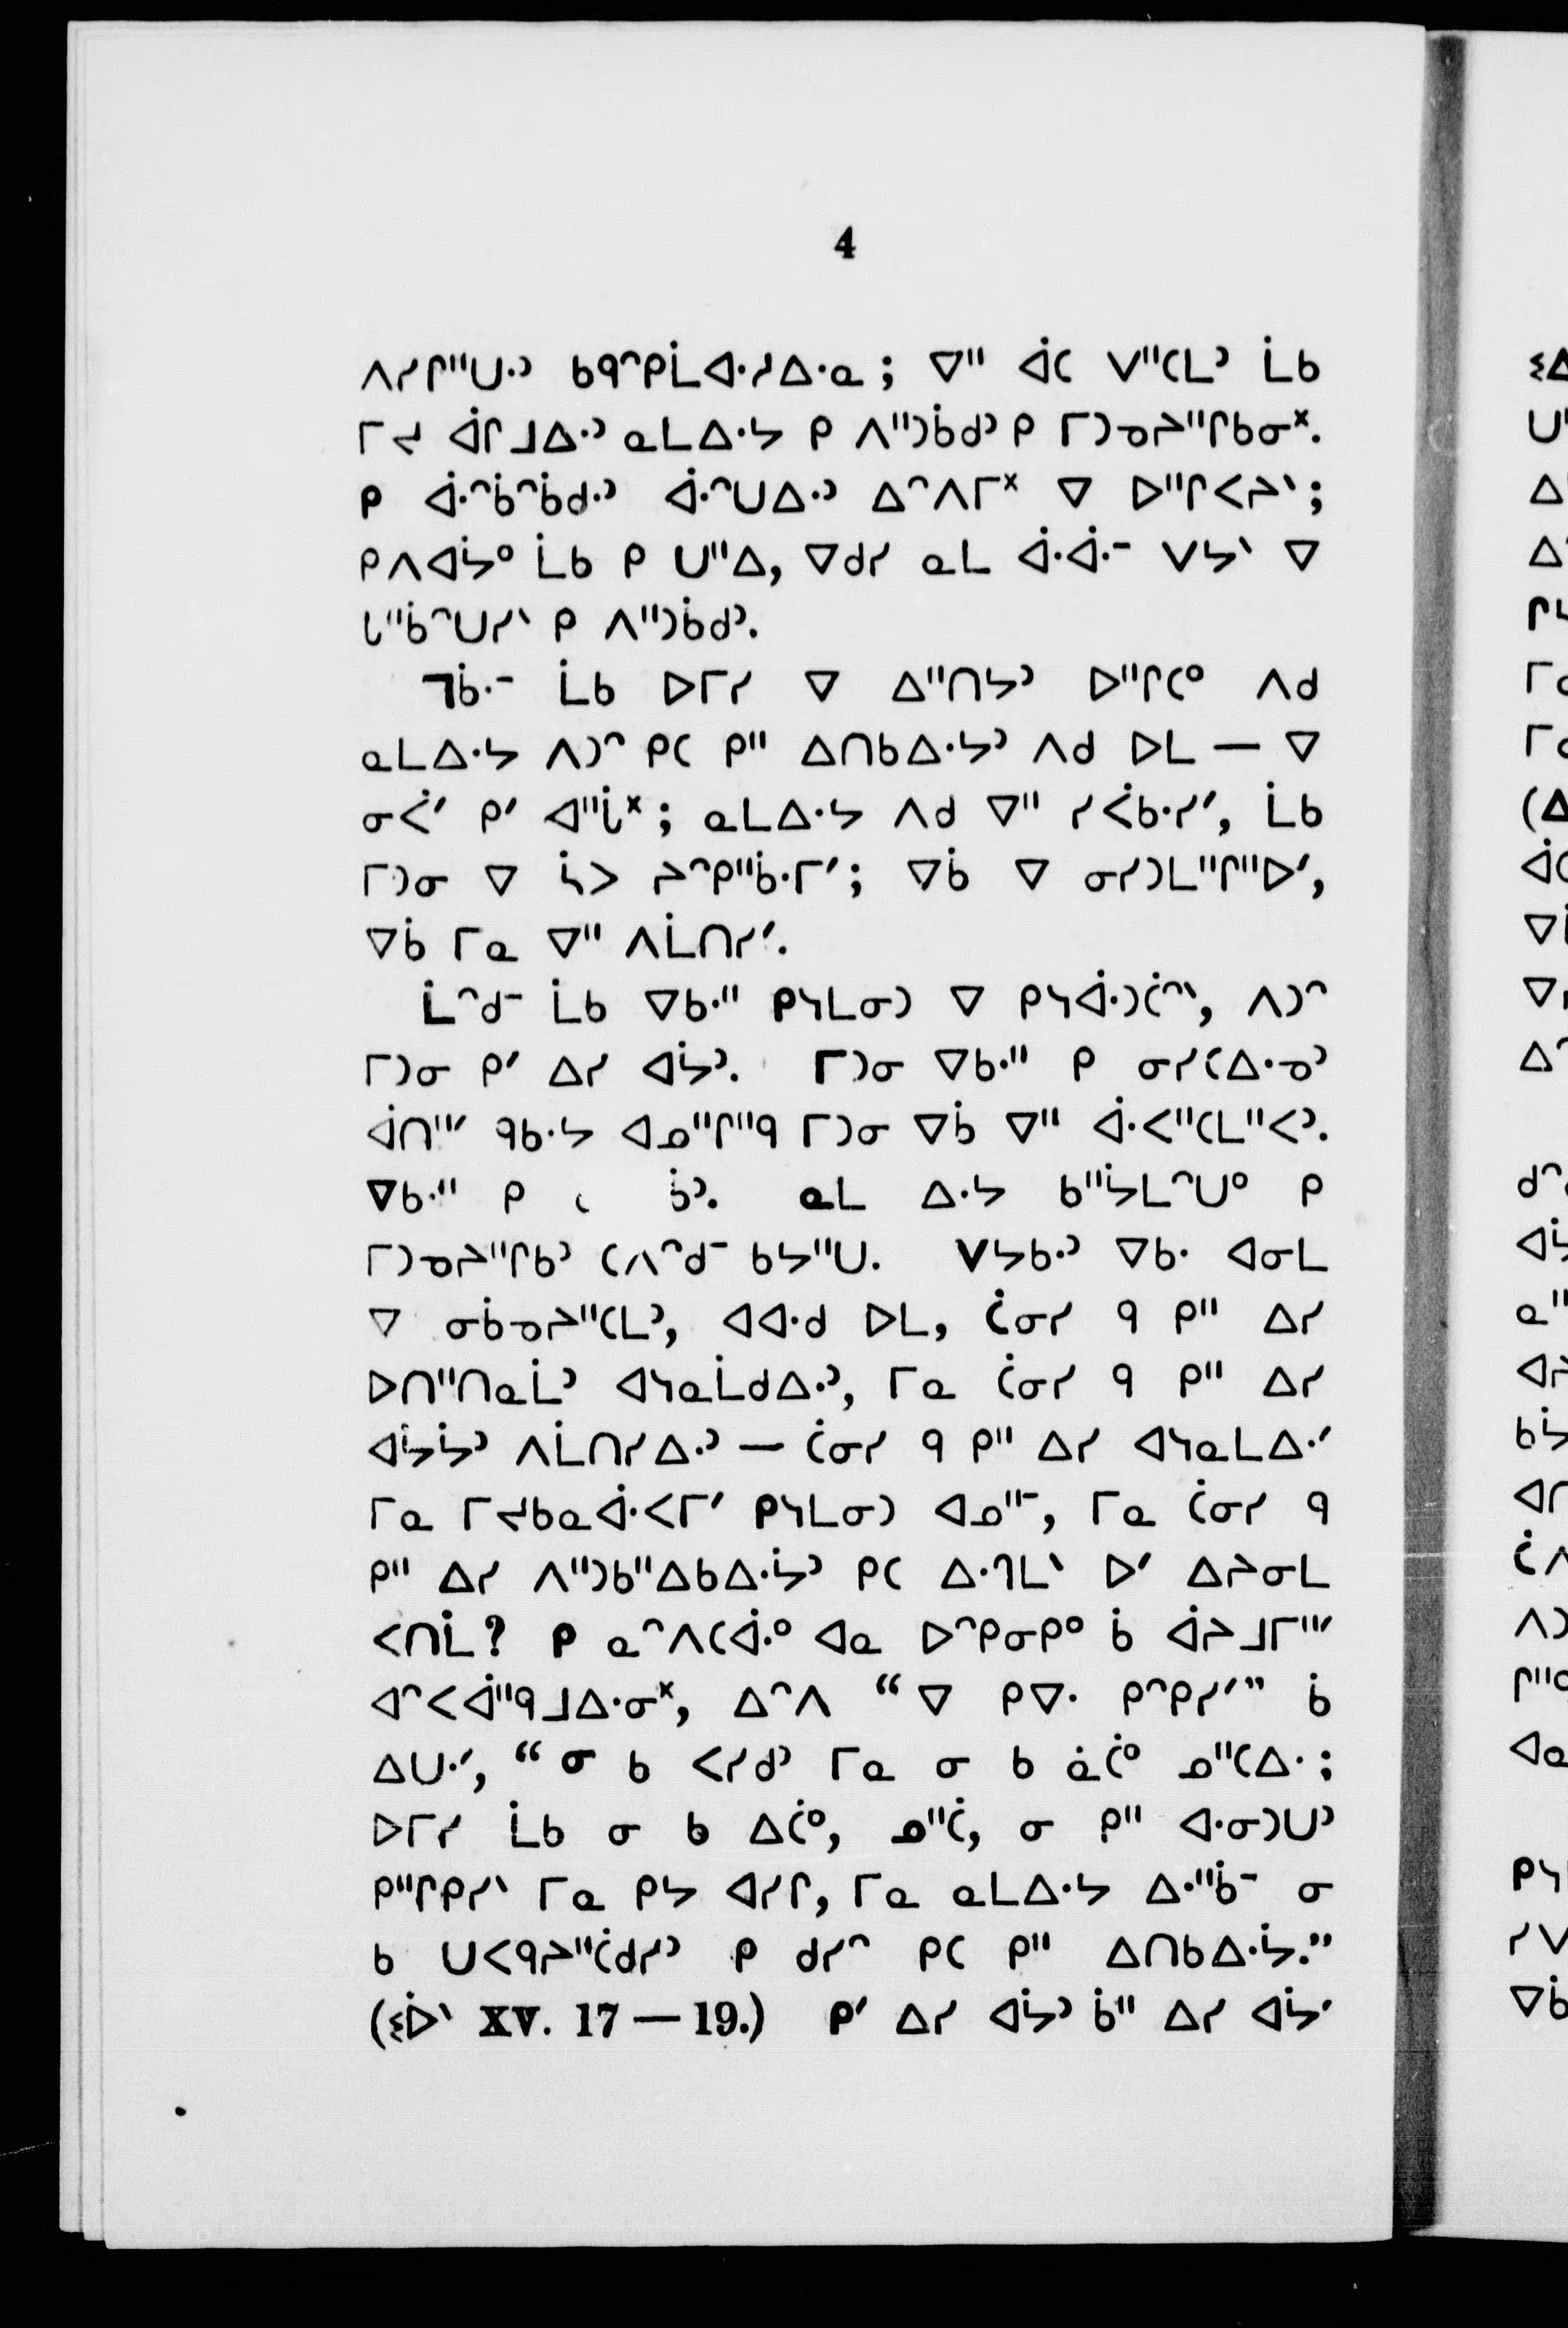 4
ᐱᓯᒋᐦᑌᐧᐣ ᑲᑫᐢᑭᒫᐊᐧᓱᐃᐧᓇ; ᐁᐦ ᐋᑕ ᐯᐦᑕᒪᐣ ᒫᑲ
ᒥᔪ ᐋᒋᒧᐃᐧᐣ ᓇᒪᐃᐧᔭ ᑭ ᐱᐦᑐᑳᑯᐣ ᑭ ᒥᑐᓀᔨᐦᒋᑲᓂᕽ.
ᑭ ᐋᐧᐢᑳᐢᑳᑯᐧᐣ ᐋᐧᐢᑌᐃᐧᐣ ᐃᐢᐱᒥᕽ ᐁ ᐅᐦᒋᐸᔨᐠ;
ᑭᐱᐊᔮᐤ ᒫᑲ ᑭ ᑌᐦᐃ, ᐁᑯᓯ ᓇᒪ ᐋᐧᐋᐧᐨ ᐯᔭᐠ ᐁ
ᒐᐦᑳᐢᑌᓯᐠ ᑭ ᐱᐦᑐᑳᑯᐣ.
ᒣᑳᐧᐨ ᒫᑲ ᐅᒥᓯ ᐁ ᐃᐦᑎᔭᐣ ᐅᐦᒋᑕᐤ ᐱᑯ
ᓇᒪᐃᐧᔭ ᐱᑐᐢ ᑭᑕ ᑭᐦ ᐃᑎᑲᐃᐧᔭᐣ ᐱᑯ ᐅᒪ — ᐁ
ᓂᐹᐟ ᑭᐟ ᐊᐦᒑᕽ; ᓇᒪᐃᐧᔭ ᐱᑯ ᐁᐦ ᓯᐹᑲᐧᓯᐟ, ᒫᑲ
ᒥᑐᓂ ᐁ ᓵᐳ ᔨᐢᑭᐦᑳᐧᒥᐟ; ᐁᑳ ᐁ ᓂᓯᑐᒪᐦᒋᐦᐅᐟ,
ᐁᑳ ᒥᓇ ᐁᐦ ᐱᒫᑎᓯᐟ.
ᒫᐢᑯᐨ ᒫᑲ ᐁᑲᐧᐦ ᑭᓴᒪᓂᑐ ᐁ ᑭᓴᐋᐧᑐᑖᐢᐠ, ᐱᑐᐢ
ᒥᑐᓂ ᑭᐟ ᐃᓯ ᐊᔮᐣ. ᒥᑐᓂ ᐁᑲᐧᐦ ᑭ ᓂᓯᑕᐃᐧᓀᐣ
ᐋᑎᐦᐟ ᑫᑲᐧᔭ ᐊᓄᐦᒋᐦᑫ ᒥᑐᓂ ᐁᑳ ᐁᐦ ᐋᐧᐸᐦᑕᒪᐦᐸᐣ.
ᓇᒪ ᐃᐧᔭ ᑲᐦᔮᒪᐢᑌᐤ ᑭ
ᒥᑐᓀᔨᐦᒋᑲᐣ ᑕᐱᐢᑯᐨ ᑲᔭᐦᑌ. ᐯᔭᑲᐧᐣ ᐁᑲᐧ ᐊᓂᒪ
ᐁ ᓂᑳᓀᔨᐦᑕᒪᐣ, ᐊᐊᐧᑯ ᐅᒪ, ᑖᓂᓯ ᑫ ᑭᐦ ᐃᓯ
ᐅᑎᐦᑎᓇᒫᐣ ᐊᓴᓇᒫᑯᐃᐧᐣ, ᒥᓇ ᑖᓂᓯ ᑫ ᑭᐦ ᐃᓯ
ᐊᔮᔮᐣ ᐱᒫᑎᓯᐃᐧᐣ — ᑖᓂᓯ ᑫ ᑭᐦ ᐃᓯ ᐊᓴᓇᒪᐃᐧᐟ
ᒥᓇ ᒥᔪᑲᓇᐋᐧᐸᒥᐟ ᑭᓴᒪᓂᑐ ᐊᓄᐦᐨ, ᒥᓇ ᑖᓂᓯ ᑫ
ᑭᐦ ᐃᓯ ᐱᐦᑐᑲᐦᐃᑲᐃᐧᔮᐣ ᑭᑕ ᐃᐧᒉᒪᐠ ᐅᐟ ᐃᔨᓂᒪ
ᐸᑎᒫ? ᑭ ᓇᐢᐱᑕᐋᐧᐤ ᐊᓇ ᐅᐢᑭᓂᑭᐤ ᑳ ᐋᔨᒧᒥᐦᐟ
ᐊᐢᐸᐋᐦᑫᒧᐃᐧᓂᕽ, ᐃᐢᐱ “ᐁ ᑭᐁᐧ ᑭᐢᑭᓯᐟ” ᑳ
ᐃᑌᐧᐟ, “ᓂ ᑲ ᐸᓯᑯᐣ ᒥᓇ ᓂ ᑲ ᓈᑖᐤ ᓄᐦᑕᐃᐧ;
ᐅᒥᓯ ᒫᑲ ᓂ ᑲ ᐃᑖᐤ, ᓄᐦᑖ, ᓂ ᑭᐦ ᐊᐧᓂᑐᑌᐣ
ᑭᐦᒋᑭᓯᐠ ᒥᓇ ᑭᔭ ᐊᓯᒋ, ᒥᓇ ᓇᒪᐃᐧᔭ ᐃᐧᐦᑳᐨ ᓂ
ᑲ ᑌᐸᑫᔨᐦᑖᑯᓯᐣ ᑭ ᑯᓯᐢ ᑭᑕ ᑭᐦ ᐃᑎᑲᐃᐧᔮ.”
(ᓬᐆᐠ XV. 17 — 19.) ᑭᐟ ᐃᓯ ᐊᔮᐣ ᑳᐦ ᐃᓯ ᐊᔮᐟ